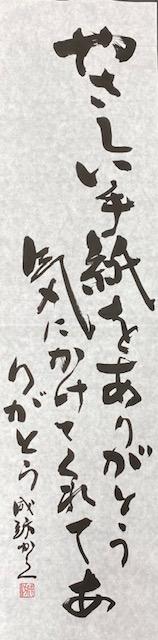 やさしい手紙をありがとう
気にかけてくれてあ
りがとう
かく